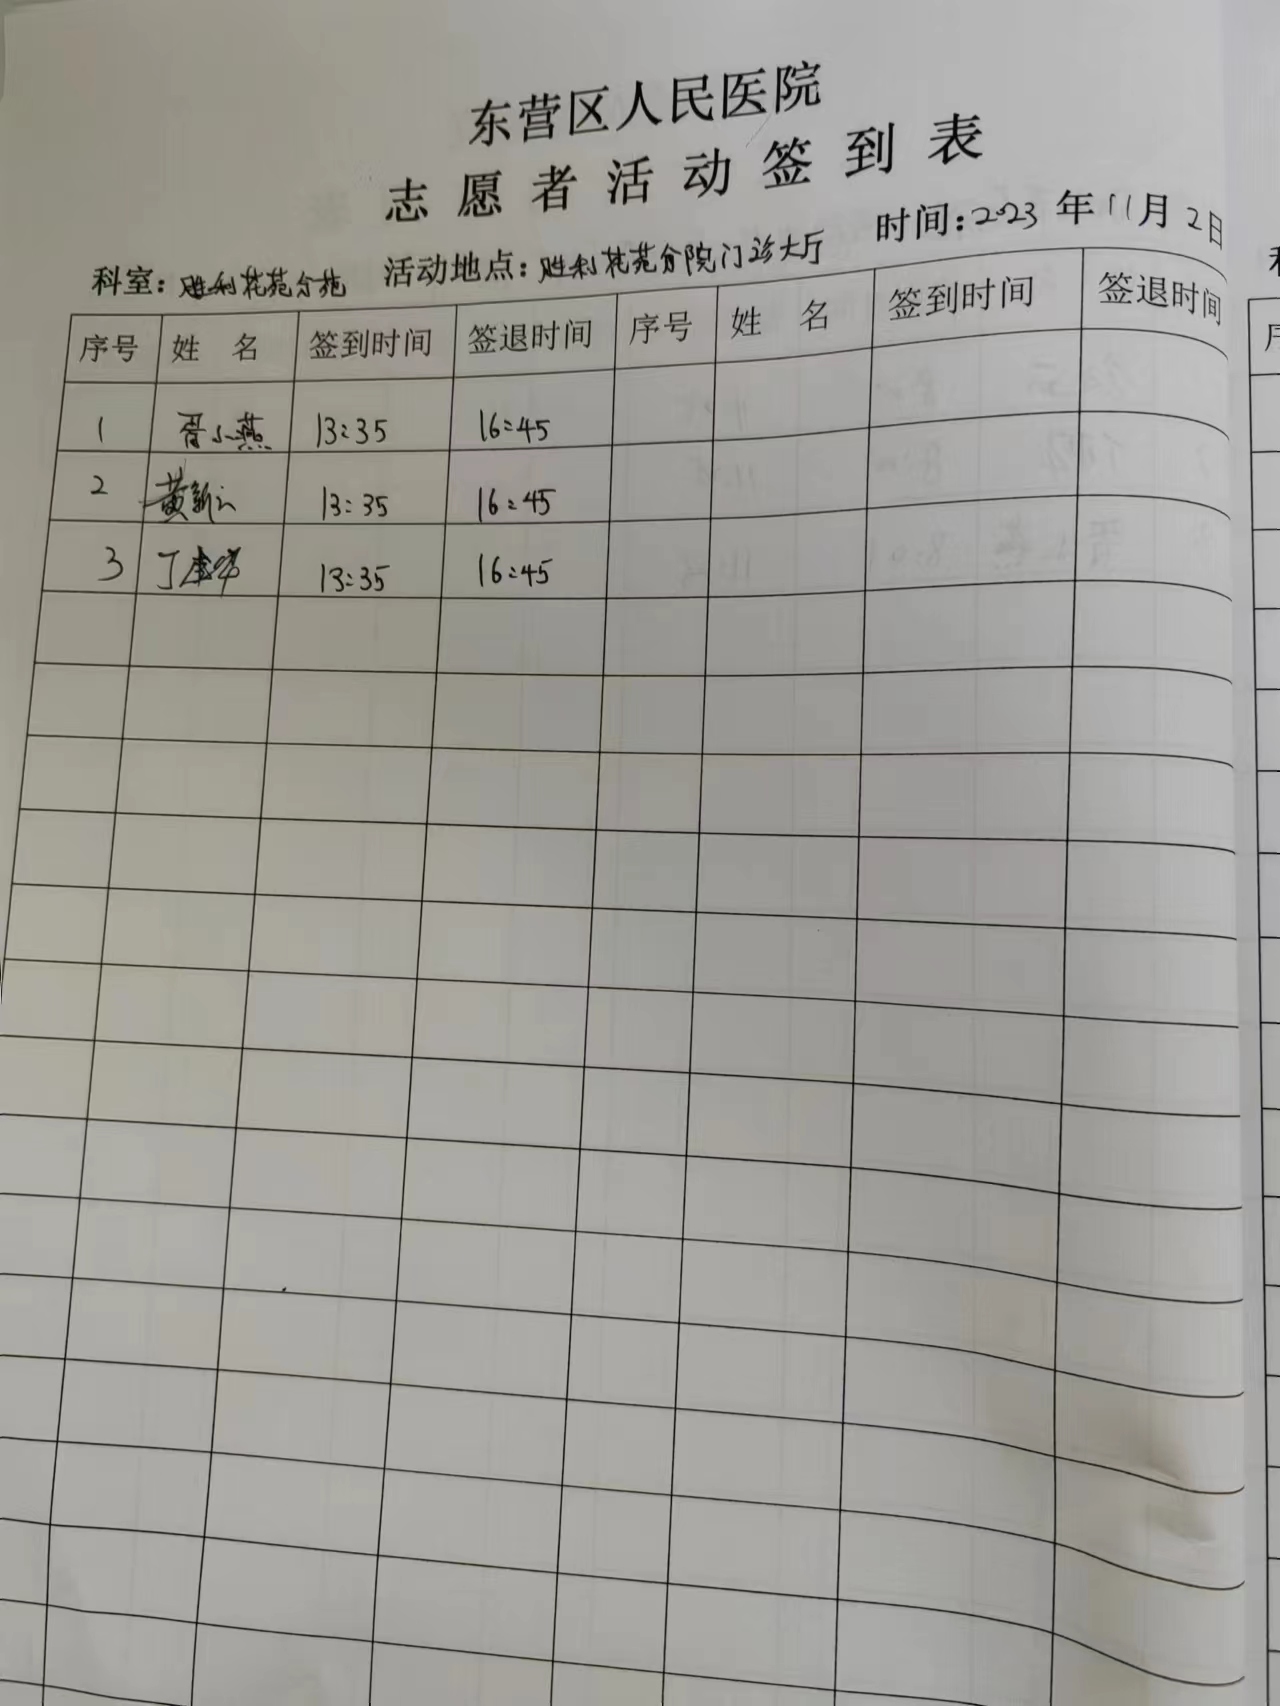 东营区人民医院
志愿者活动签到表
时间:2023年11月2日
科室:胜利花苑分苑 活动地点:胜利花苑分院门诊大厅
序号 姓名 签到时间 签退时间 序号 姓名 签到时间 签退时间
1 胥小燕 13:35 16:45
2 黄新 13:35 16:45
3 丁 13:35 16:45